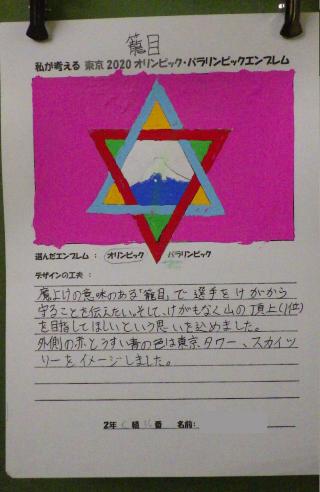 籠目
私が考える 東京2020オリンピック・パラリンピックエンブレム
選んだエンブレム : オリンピック パラリンピック
デザインの工夫 :
魔よけの意味のある「籠目」で選手をけがから
守ることを伝えたい。そして、けがもなく山の頂上(1位)
を目指してほしいという思いを込めました。
外側の赤とうすい青の色は東京タワー、スカイツ
リーをイメージしました。
2年 組 番 名前: